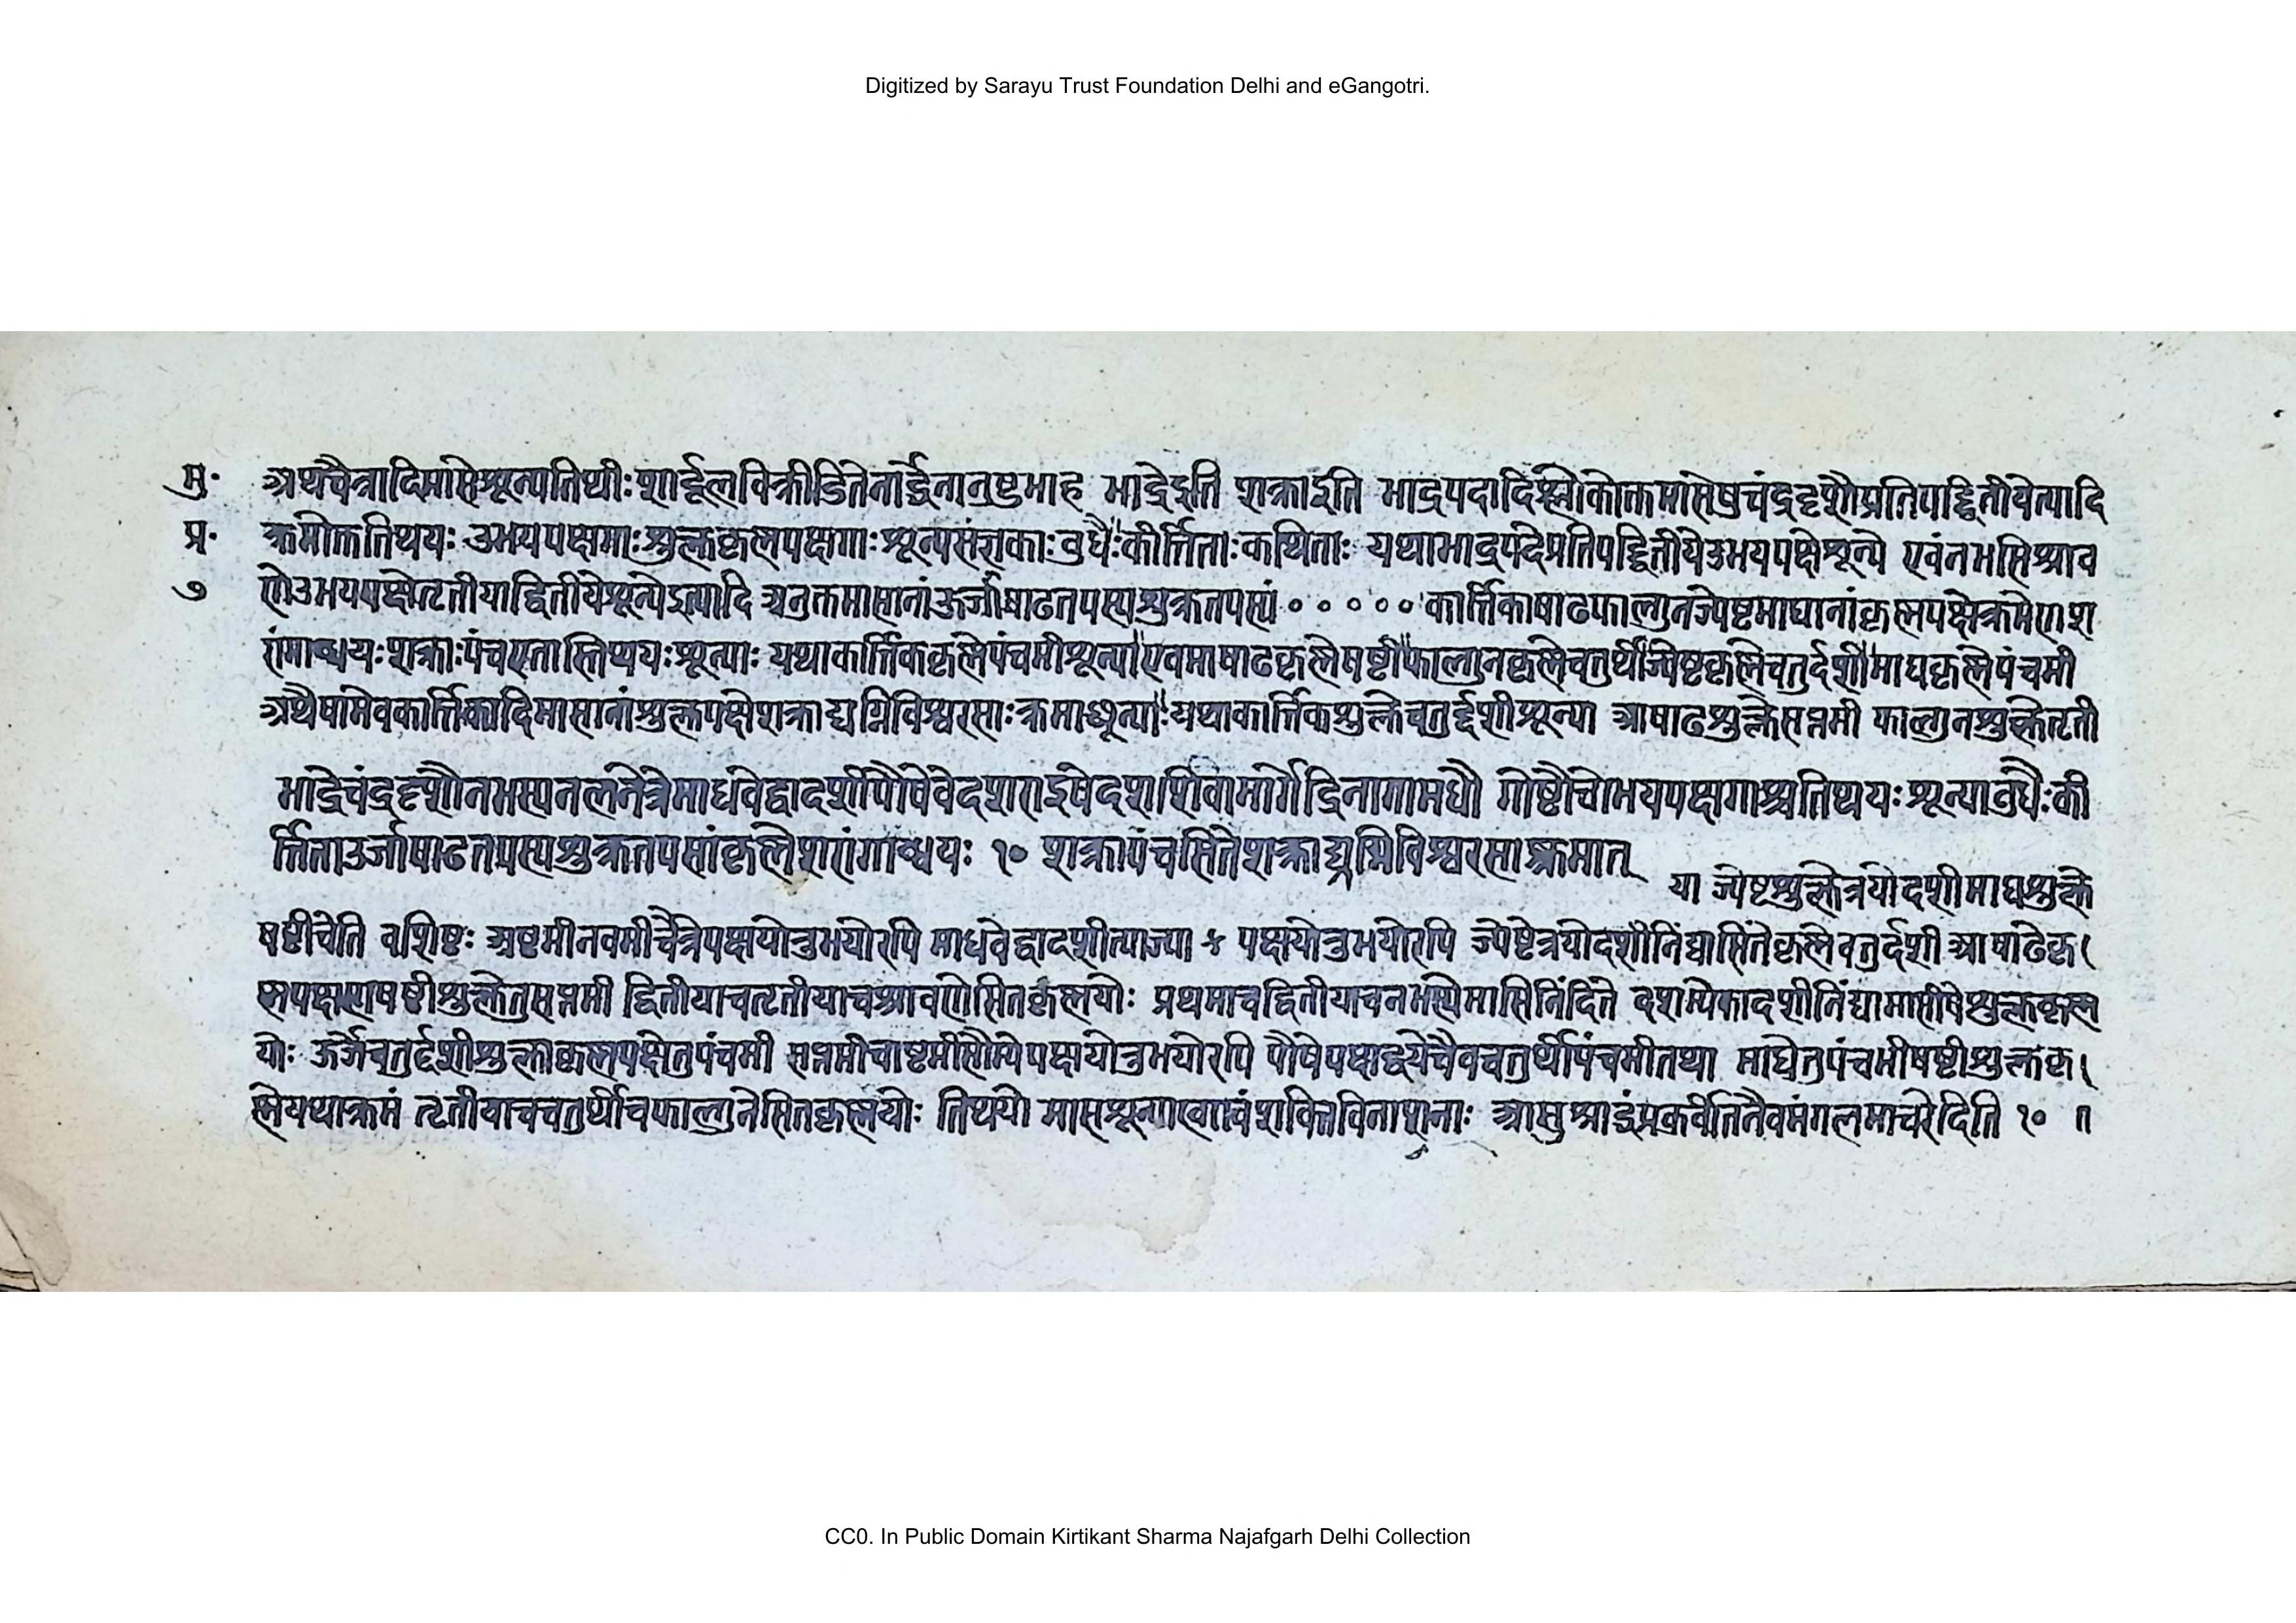 Digitized by Sarayu Trust Foundation Delhi and eGangotri.
मु॰ अथचैत्रादिमासेशून्यतिथीःशार्दूलविक्रीडितेनार्द्धेनानुष्टुमाह भाद्रेइति शक्राइति भाद्रपदादिश्लोकोक्तमासेषुचंद्रदृशौप्रतिपद्द्वितीयेत्यादि
प्र॰ क्रमोक्ततिथयः उभयपक्षमाःशुक्लकृष्णपक्षगाःशून्यसंज्ञकाःबुधैःकीर्त्तिताःकथिताः यथाभाद्रपदेप्रतिपद्द्वितीयेउभयपक्षेशून्ये एवंनभसिश्राव
७ णेउभयपक्षेतृतीयाद्वितीयेशून्येइत्यादि अनुक्तमासानांऊर्जाषाढतपस्यशुक्रतपस्यं॰ ॰ ॰ ॰ ॰ कार्त्तिकाषाढफाल्गुनज्येष्टमाघानांकृष्णपक्षेक्रमेणश
रांगाब्धयःशक्राःपंचएतास्तिथयःशून्याः यथाकार्त्तिककृष्णेपंचमीशून्या एवमाषाढकृष्णेषष्टी फाल्गुनकृष्णेचतुर्थी ज्येष्टकृष्णेचतुर्दशी माघकृष्णेपंचमी
अथैषामेवकार्त्तिकादिमासानांशुक्लपक्षेशक्राद्यग्निविश्वरसाःक्रमाशून्याः यथाकार्त्तिकशुक्लेचतुर्द्दशीशून्या आषाढशुक्लेसप्तमी फाल्गुनशुक्लेतृती
भाद्रेचंद्रदृशौनभस्यनलनेत्रेमाधवेद्वादशीपौषेवेदशराइषेदशशिवामार्गेद्रिनागामधौ गोष्टौचोभयपक्षगाश्चतिथयःशून्याबुधैःकी
र्त्तिताउर्जाषाढतपस्यशुक्रतपसांकृष्णेशरांगाब्धयः १० शक्रापंचसितेशक्राद्यग्निविश्वरसाःक्रमात्
या ज्येष्टशुक्लेत्रयोदशीमाघशुक्ले
षष्टीचेति वशिष्टः अष्टमीनवमीचैत्रेपक्षयोरुभयोरपि माधवेद्वादशीत्याज्या पक्षयोरुभयोरपि ज्येष्टेत्रयोदशीनिंद्यासितेकृष्णेचतुर्दशी आषाढेकृ
ष्णपक्षस्यषष्ठीशुक्लेतुसप्तमी द्वितीयाचतृतीयाचश्रावणेसितकृष्णयोः प्रथमाचद्वितीयाचनभस्येमासिनिंदिते दशम्येकादशीनिंद्यामासीषेशुक्लकृष्ण
योः ऊर्जेचतुर्द्दशीशुक्लाकृष्णपक्षेतुपंचमी सप्तमीचाष्टमीसौम्येपक्षयोरुभयोरपि पौषेपक्षद्वयेचैवचतुर्थीपंचमीतथा माघेतुपंचमीषष्टीशुक्लकृ
ष्णेयथाक्रमं तृतीयाचचतुर्थीचफाल्गुनेसितकृष्णयोः तिथयो मासशून्याख्या आसुश्राद्धंप्रकुर्वीतनैवमंगलमाचरेदिति १०
CC0. In Public Domain Kirtikant Sharma Najafgarh Delhi Collection